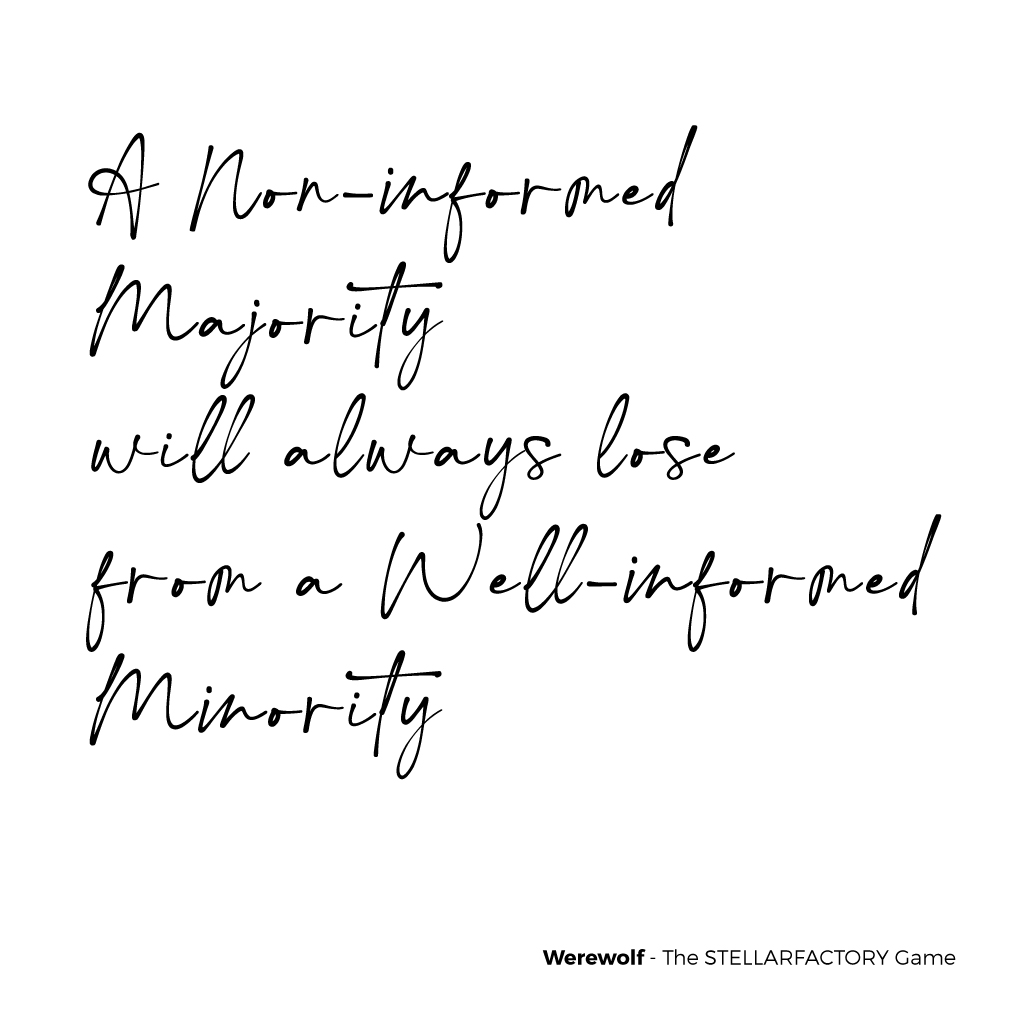 A Non-informed
Majority
will always lose
from a Well-informed
Minority
Werewolf - The STELLARFACTORY Game